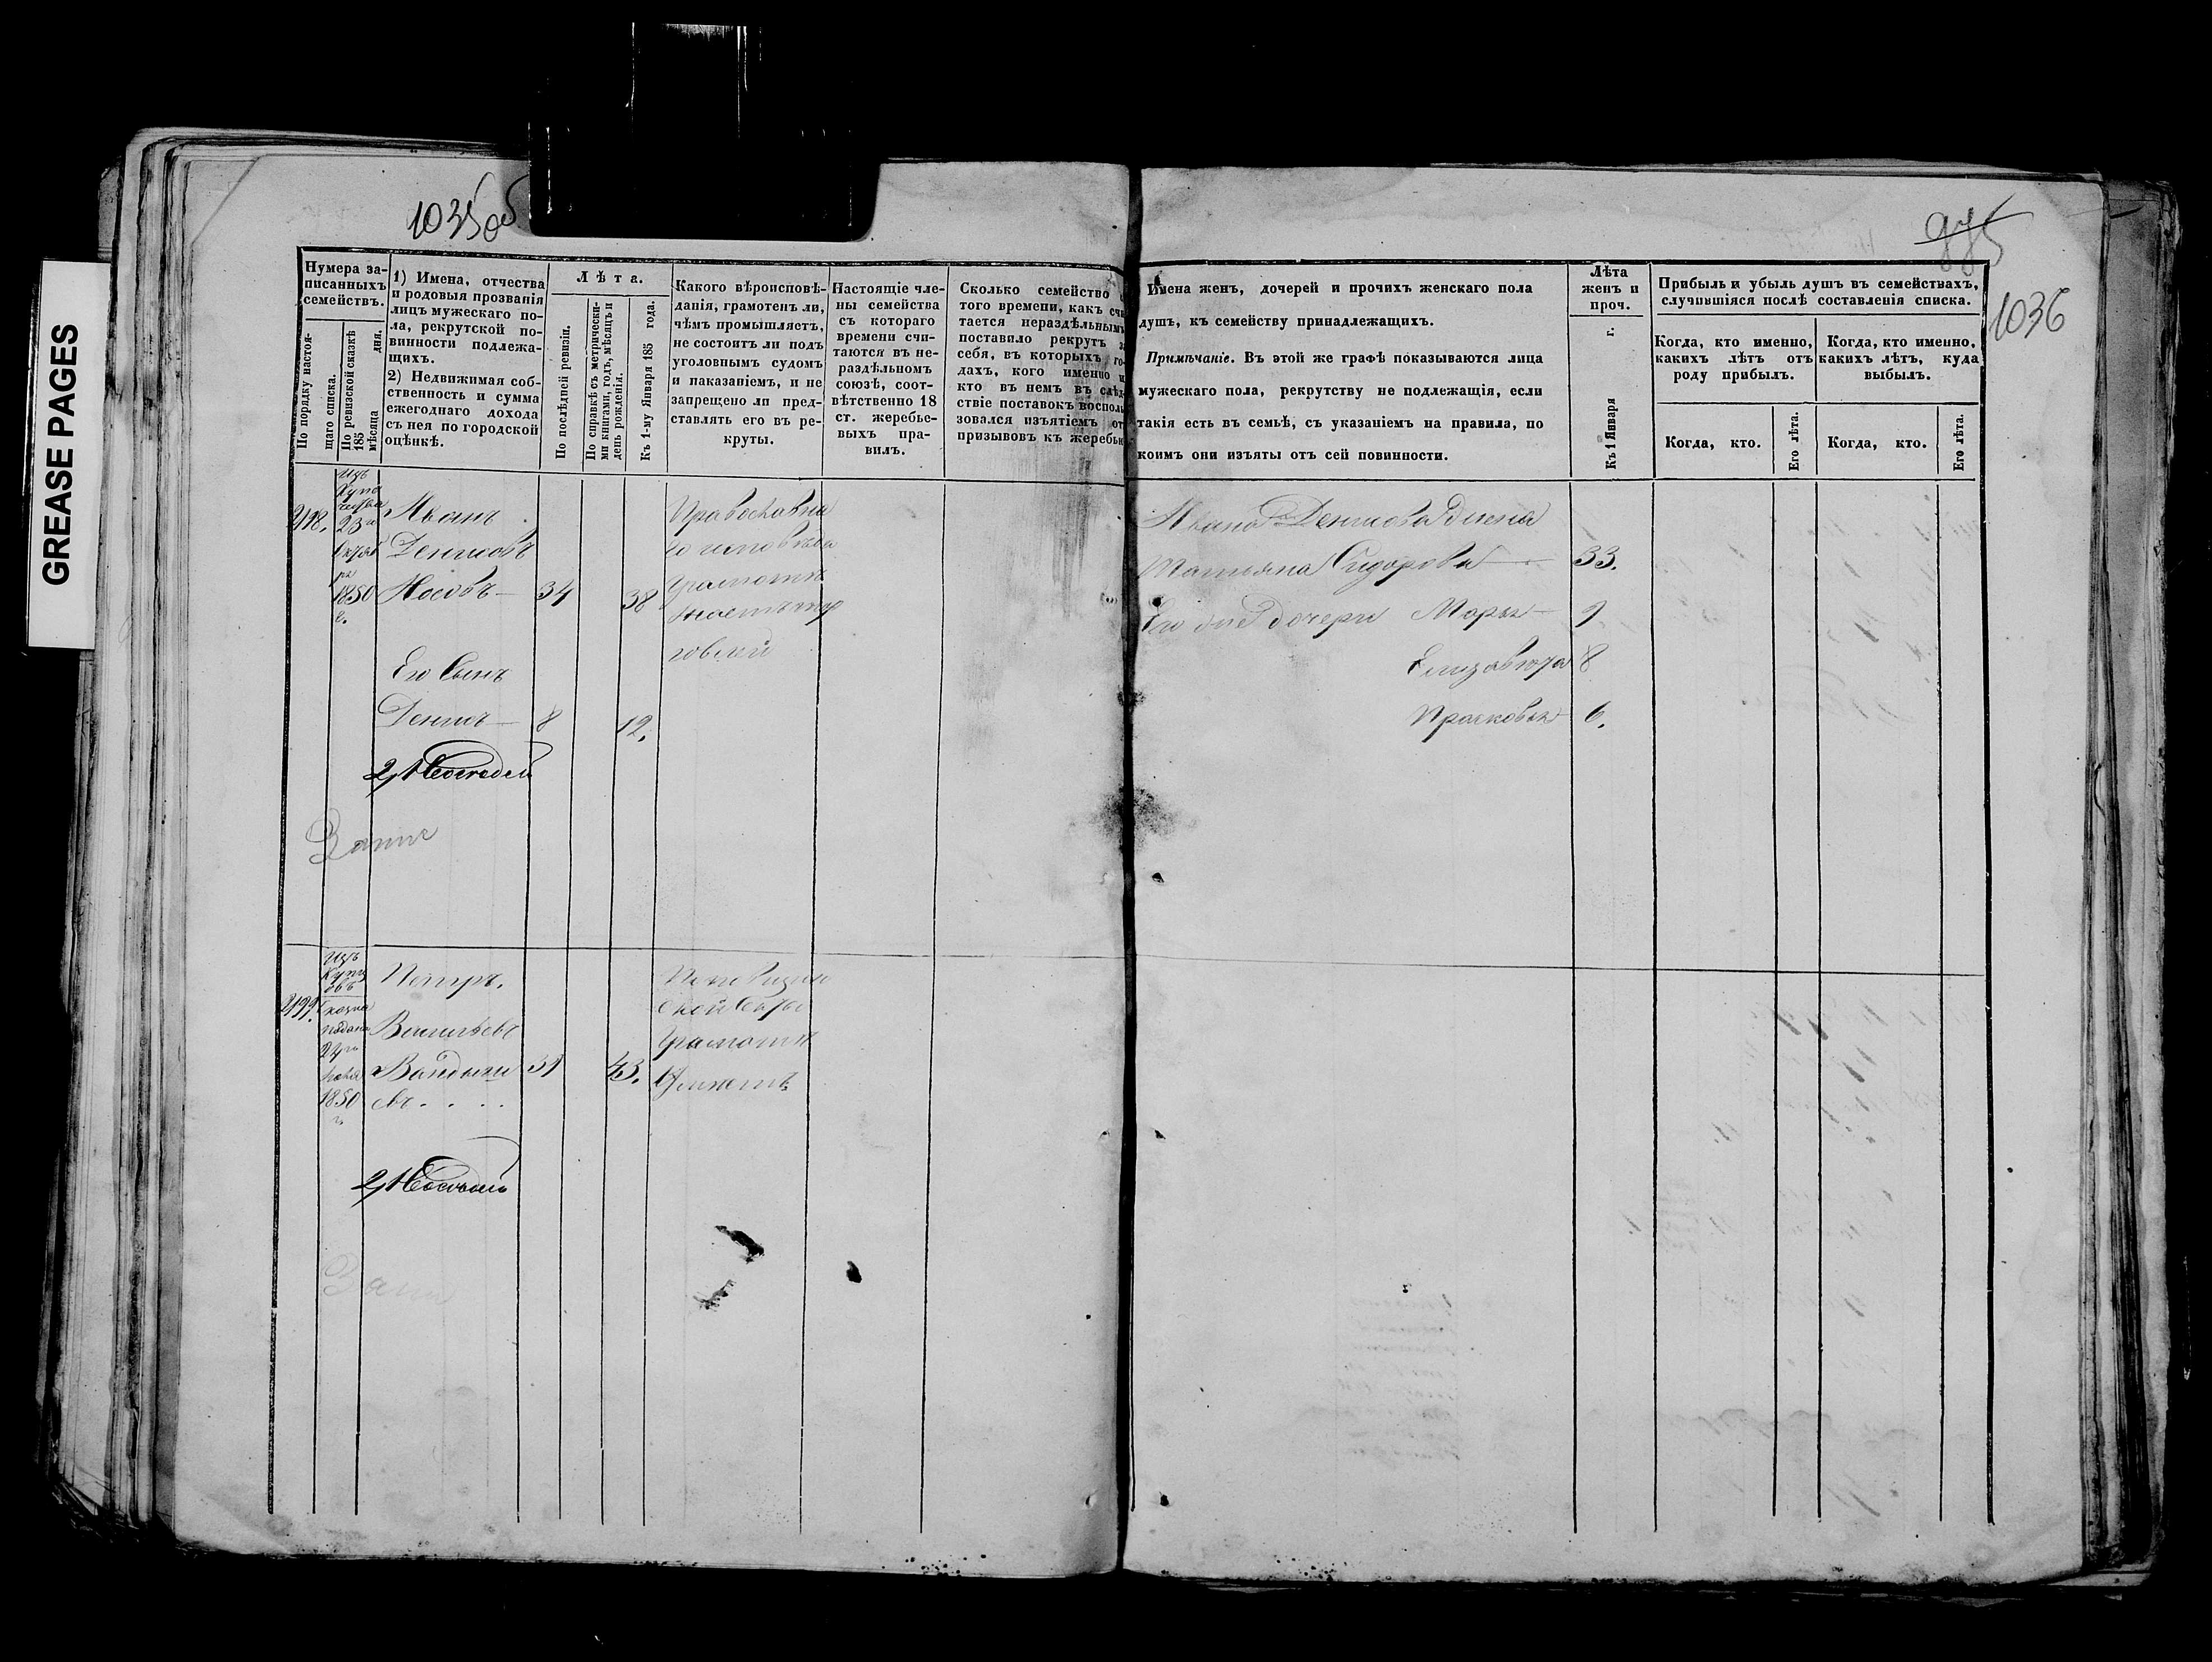 GREASE PAGES
1035об
Нумера за-
писанныхъ
семействъ.
По порядку настоя-
щаго списка.
По ревизской сказкѣ
185 дня.
мѣсяца
1) Имена, отчества
и родовыя прозванія
лицъ мужескаго по-
ла, рекрутской по-
винности подлежа-
щихъ.
2) Недвижимая соб-
ственность и сумма
ежегоднаго дохода
съ нея по городской
оцѣнкѣ.
Лѣта.
По послѣдней ревизіи.
По справкѣ съ метрически-
ми книгами, годъ, мѣсяцъ и
день рожденія.
Къ 1-му Января 185 года.
Какого вѣроисповѣ-
данія, грамотенъ ли,
чѣмъ промышляетъ,
не состоитъ ли подъ
уголовнымъ судомъ
и наказаніемъ, и не
запрещено ли пред-
ставлять его въ ре-
круты.
Настоящіе чле-
ны семейства
съ котораго
времени счи-
таются въ не-
раздѣльномъ
союзѣ, соот-
вѣтственно 18
ст. жеребье-
выхъ пра-
вилъ.
Сколько семейство
того времени, какъ счи
тается нераздѣльнымъ
поставило рекрутъ
себя, въ которыхъ го-
дахъ, кого именно и
кто въ немъ въ слѣд
ствіе поставокъ восполь
зовался изъятіемъ от
призывовъ къ жеребью
Изъ
Купе
чества
23го
Октяб
ря
1850
г.
Иванъ
Денисовъ
Носовъ — 34 38
Православна
го исповѣда
Грамотѣ
знаетъ тор
говлей
Его Сынъ
Денисъ — 8 12.
Изъ
Купц
овъ
1850
г.
Петръ
Васильевъ
31 43.
евъ . . . .
Грамотѣ
975
1036
Имена женъ, дочерей и прочихъ женскаго пола
душъ, къ семейству принадлежащихъ.
Примѣчаніе. Въ этой же графѣ показываются лица
мужескаго пола, рекрутству не подлежащія, если
такія есть въ семьѣ, съ указаніемъ на правила, по
коимъ они изъяты отъ сей повинности.
Лѣта
женъ и
проч.
Къ 1 Января г.
Прибыль и убыль душъ въ семействахъ,
случившіяся послѣ составленія списка.
Когда, кто именно,
какихъ лѣтъ отъ
роду прибылъ.
Когда, кто именно,
какихъ лѣтъ, куда
выбылъ.
Когда, кто.
Его лѣта.
Когда, кто.
Его лѣта.
Ивана Денисова жена
Татьяна Сидорова — 33.
Его дочери Марья — 9
Елизавета 8
Прасковья 6.